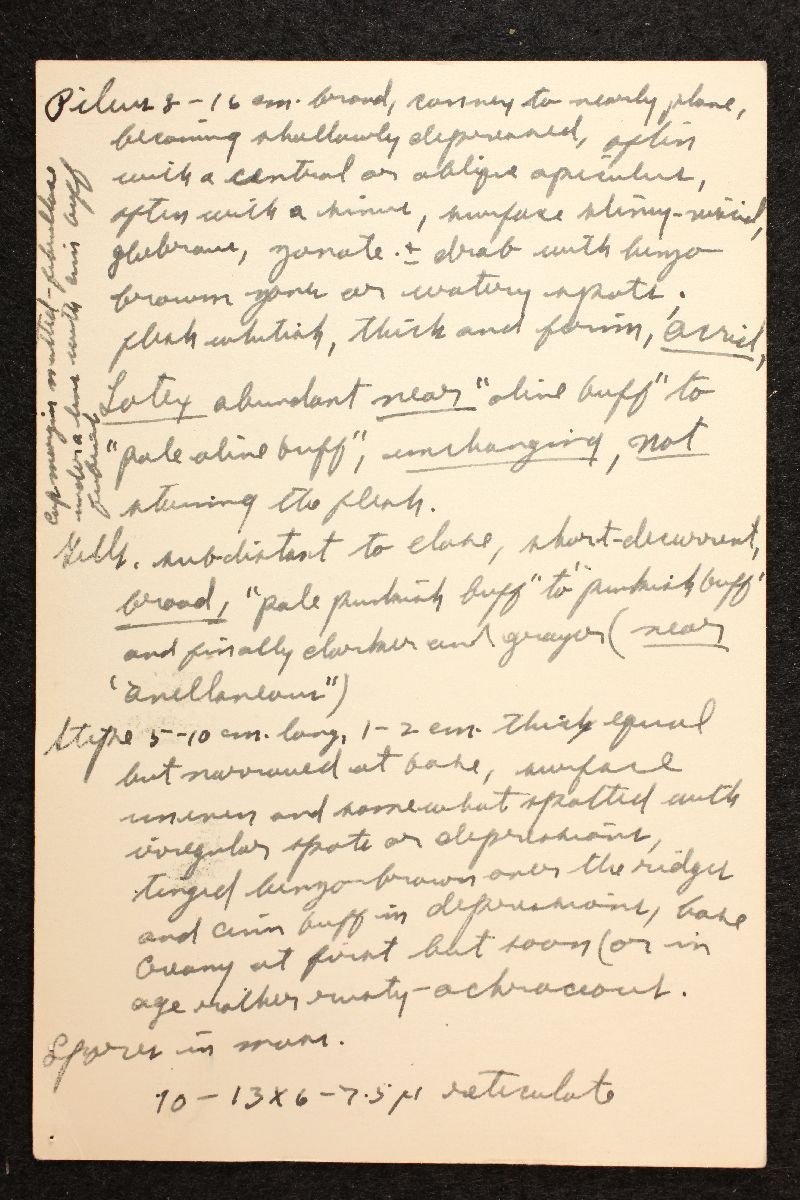 Pileus 8-16 cm. broad, convex to nearly plane,
becoming shallowly depressed, often
with a central or oblique apiculus,
often with a sinus, surface slimy-viscid,
glabrous, zonate. ± drab with benzo
brown zones or watery spots.
flesh whitish, thick and firm, acrid,
Latex abundant near "olive buff" to
"pale olive buff", unchanging, not
staining the flesh.
Gills. subdistant to close, short-decurrent,
broad, "pale pinkish buff" to "pinkish buff"
and finally darker and grayer (near
"avellaneous")
Stipe 5-10 cm. long, 1-2 cm. thick equal
but narrowed at base, surface
uneven and somewhat spotted with
irregular spots or depressions,
tinged benzo-brown over the ridges
and cinn buff in depressions, base
creamy at first but soon (or in
age rather rusty-ochraceous.
Spores in mass.
10-13 x 6-7.5 µ reticulate
Cap margin matted-fibrillose
under a lens with cinn buff